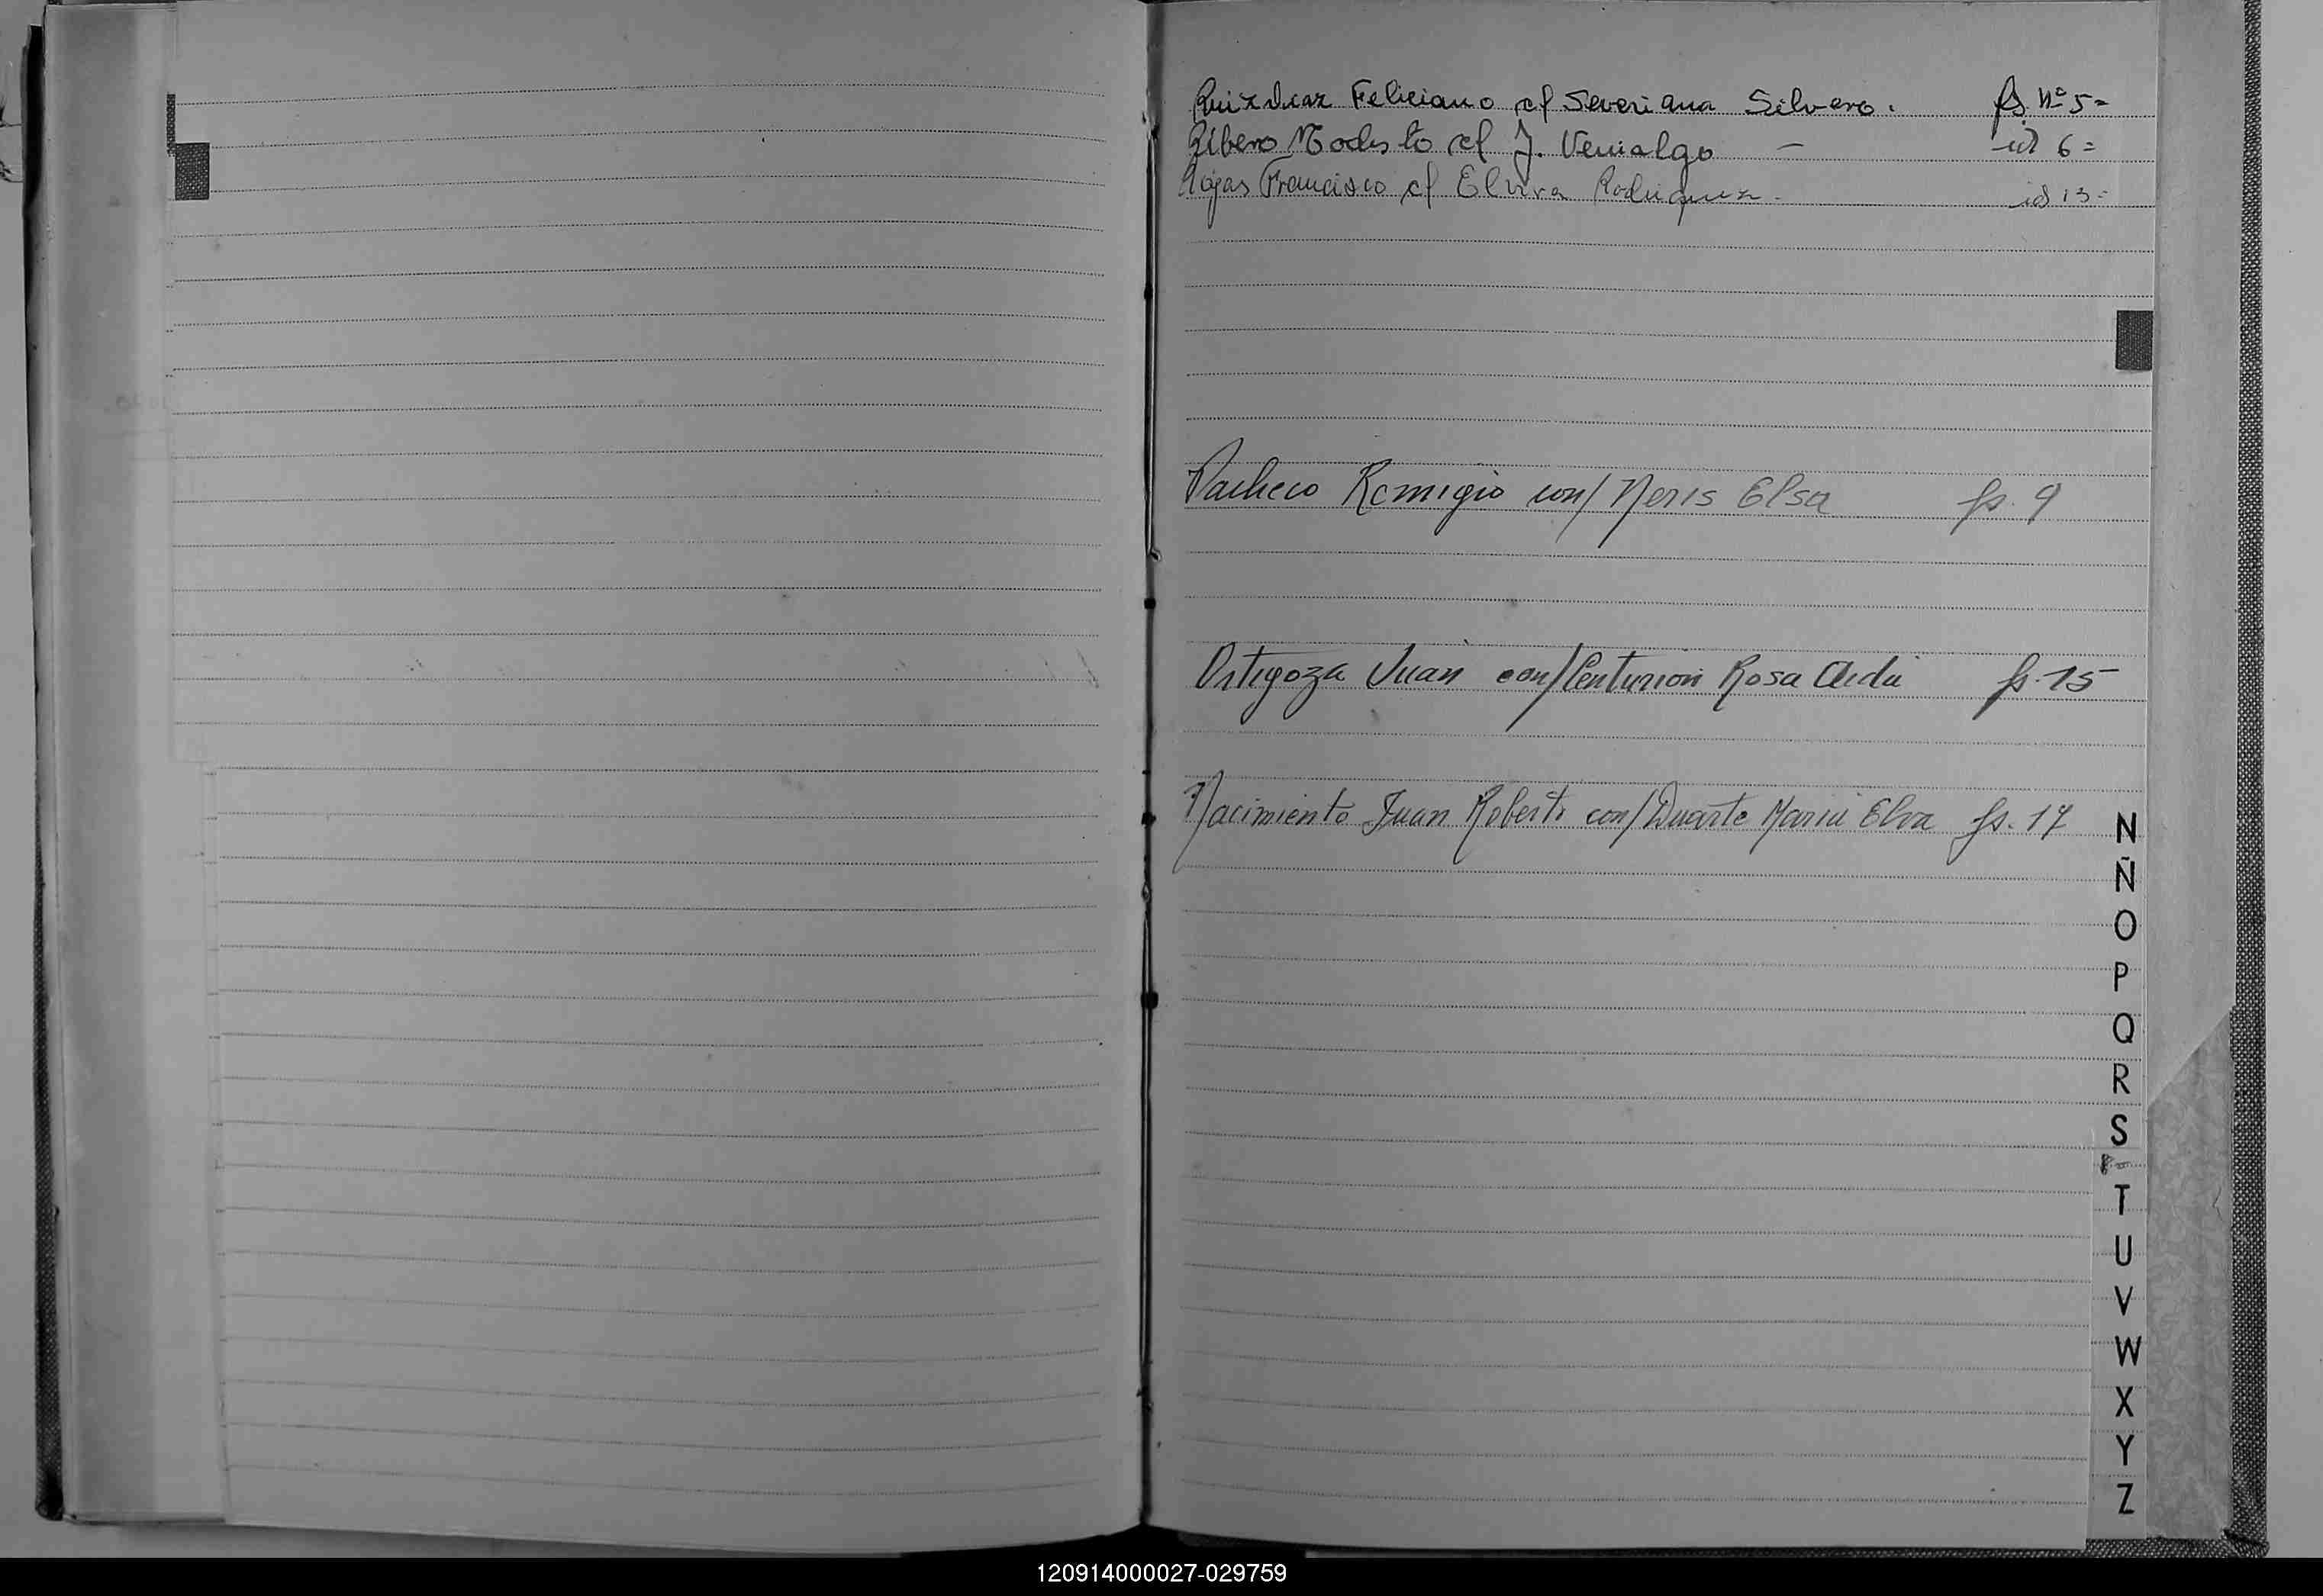 Ruizdiaz Feliciano c/ Severiana Silvero. fs. Nº 5=
Ribero Modesto c/ J. Venialgo — id 6=
Rojas Francisco c/ Elvira Rodriguez - id 13=
Pacheco Remigio con/ Neris Elsa fs. 9
Ortigoza Juan con/ Centurion Rosa Aida fs. 15
Nacimiento Juan Roberto con/ Duarte Maria Elva fs. 17
N
Ñ
O
P
Q
R
S
T
U
V
W
X
Y
Z
120914000027-029759